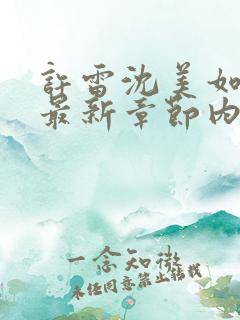 許雷沈美如
最新章節內
一念知微
未經同意禁止轉載